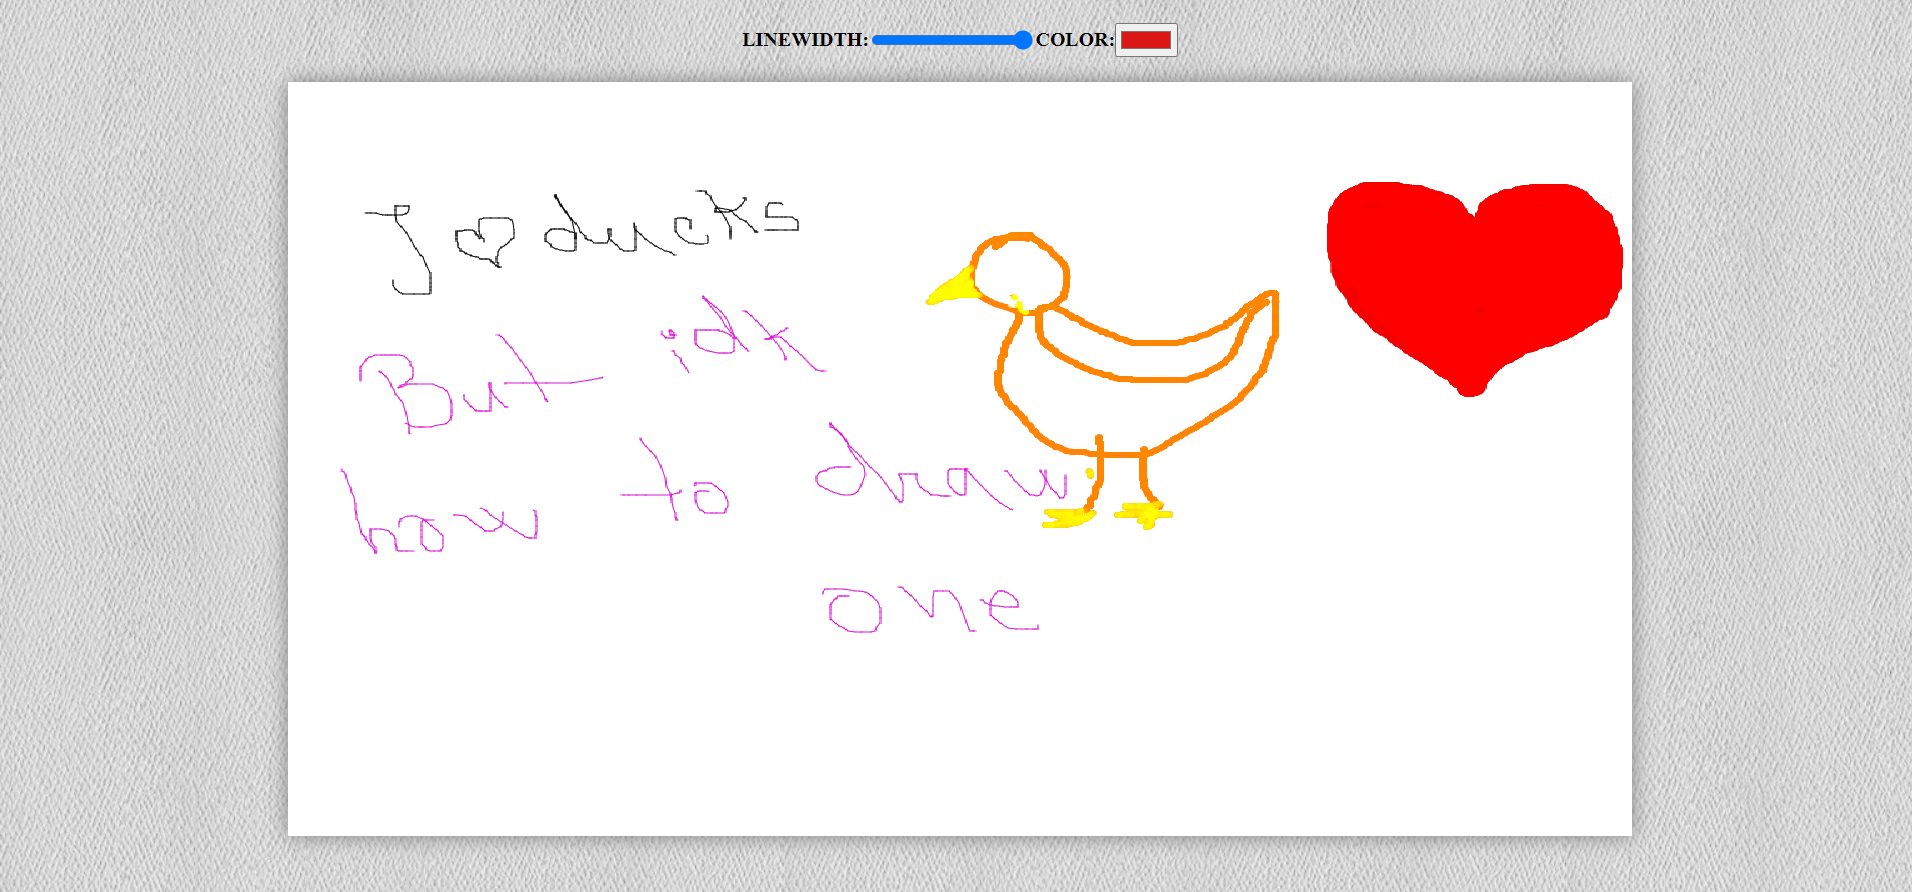 LINEWIDTH: COLOR:
I ♡ ducks
But idk
how to draw
one